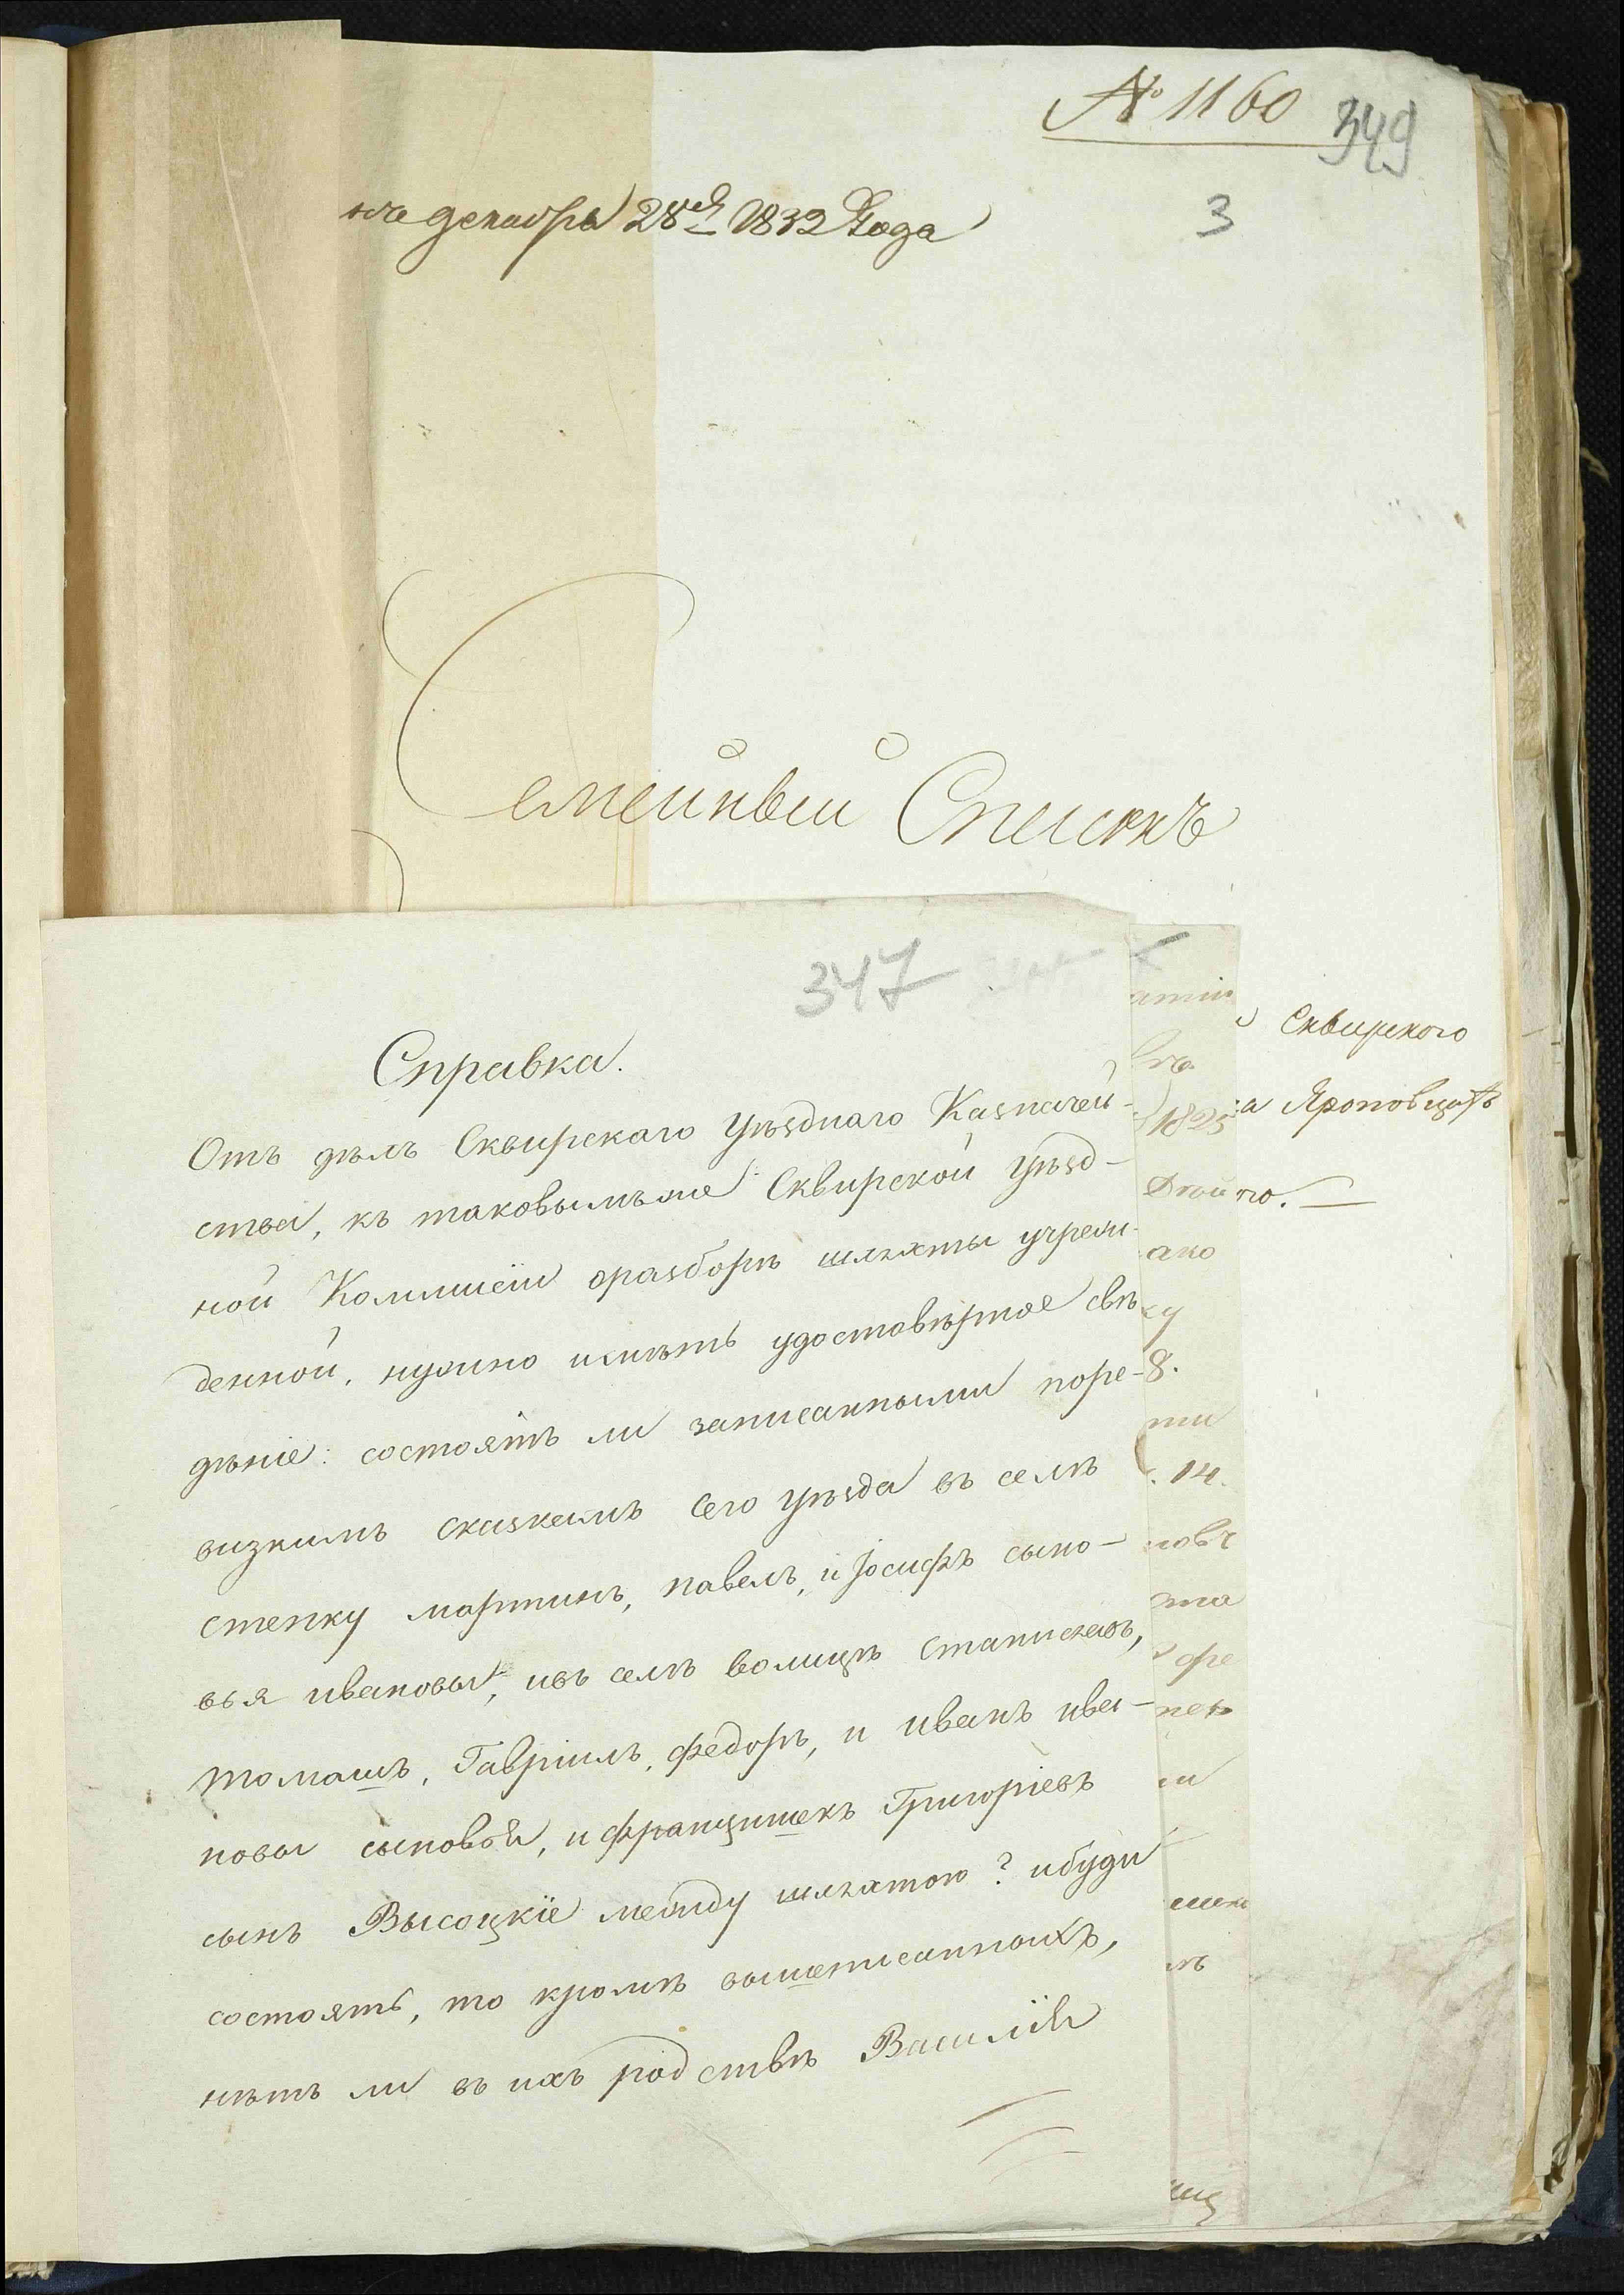 № 1160 349
на декабря 28го 1832 Года 3
Семейный Списокъ
Сквирского
Яроповцахъ
го.
347
Справка.
Отъ дѣлъ Сквирскаго Уѣзднаго Казначей-
ства, къ таковымъже Сквирской Уѣзд-
ной Коммисіи оразборѣ шляхты учреж-
денной, нужно имѣть удостовѣрное свѣ
дѣніе: состоятъ ли записанными поре-
визкимъ сказкамъ Сего Уѣзда въ селѣ
степку мартинъ, павелъ, и Іосифъ сыно-
вья ивановы, ивъ селѣ волицѣ Станиславъ,
томашъ, Гавріилъ, федоръ, и иванъ ива-
новы сыновья, и францишекъ Григоріевъ
сынъ Высоцкіе между шляхтою? ибуди
состоятъ, то кромѣ вышеписанныхъ,
нѣтъ ли въ ихъ родствѣ Василія
1825
ако
8.
14.